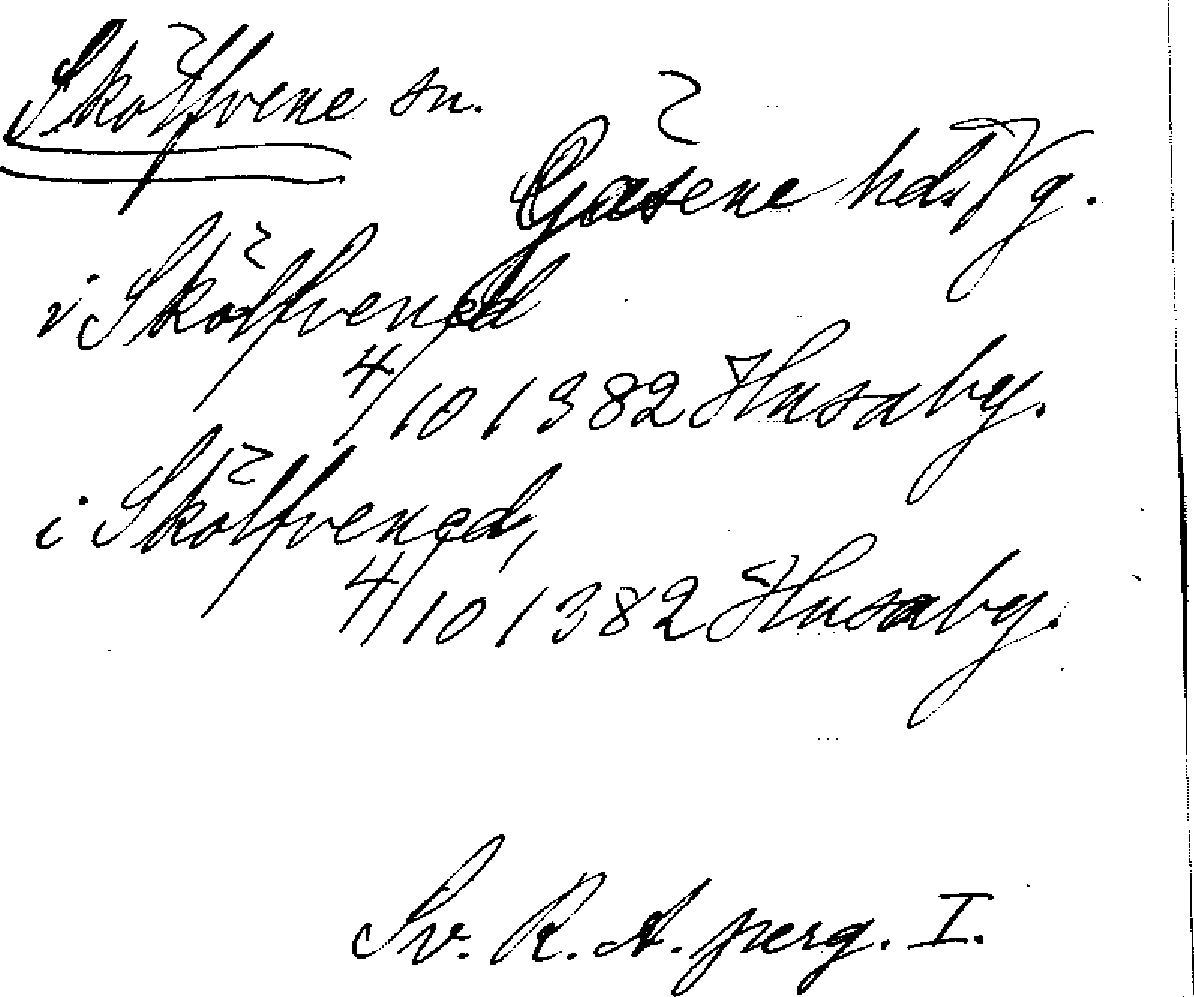 Skölfvene sn.
Gäsene hd. Vg.
i Skölfvened
4/10 1382 Husaby.
i Skölfvened,
4/10 1382 Husaby.
Sv. R. A. perg. I.